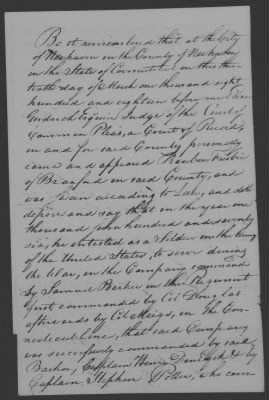 Be it remembered that at the City
of Newhaven in the County of Newhaven
in the State of Connecticut on this thir-
tieth day of March one thousand eight
hundred and eighteen before me
Goodrich Esquire Judge of the Court of
Common Pleas, a Court of Record,
in and for said County personally
came and appeared Reuben
of Branford in said County, and
was sworn according to Law, and doth
depose and say that in the year one
thousand seven hundred and seventy
six, he enlisted as a Soldier in the Army
of the United States, to serve during
the War, in the Company commanded
by Samuel Barker in the Regiment
first commanded by Col Douglas
afterwards by Col Meigs, in the Con-
necticut Line, that said Company
was successively commanded by said
Barker, Captain & by
Captain Stephen Potter, who com-